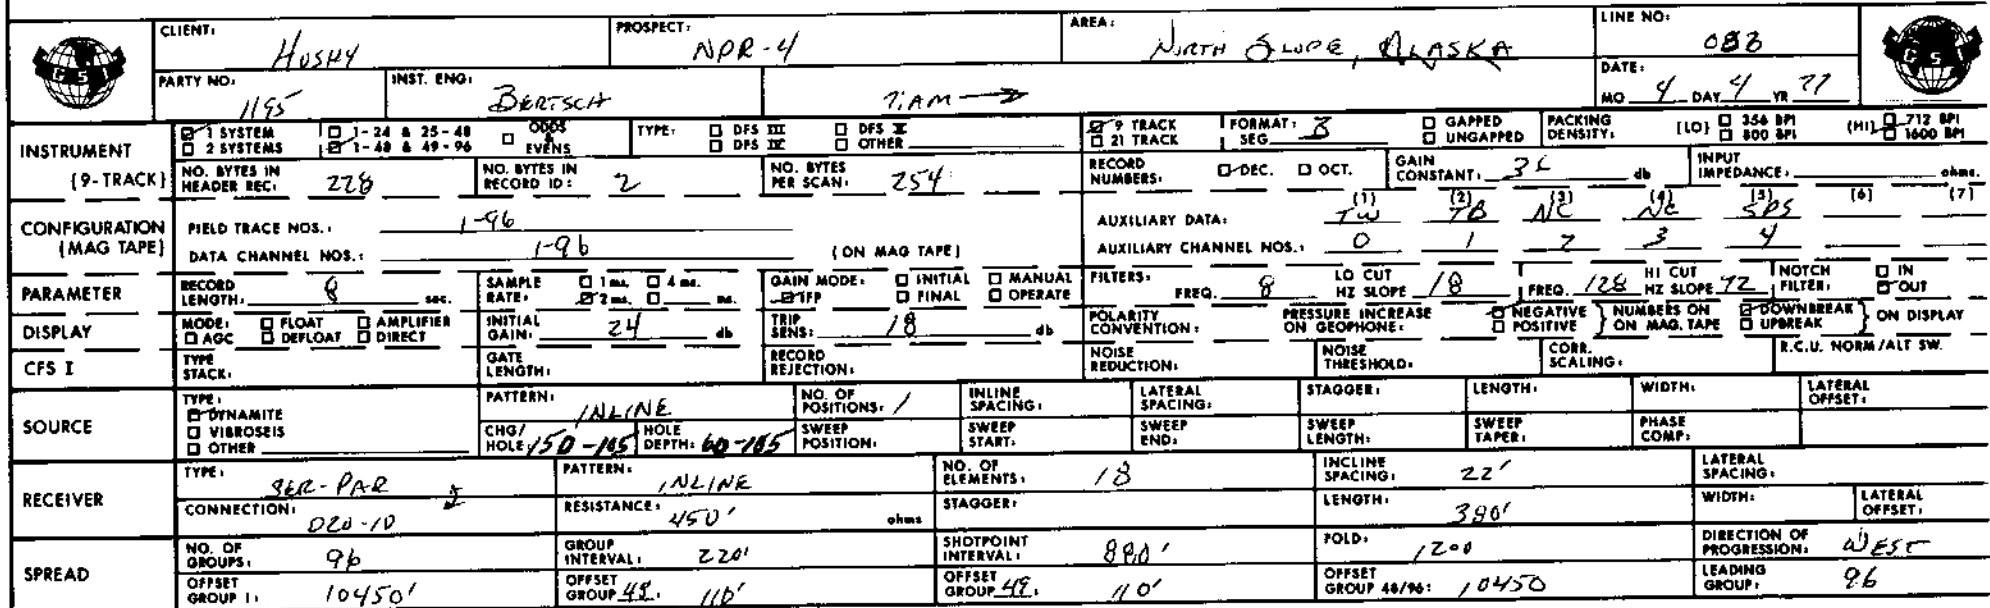 CLIENT: HUSKY PROSPECT: NPR-4 AREA: NORTH SLOPE, ALASKA LINE NO:
GSI PARTY NO: 1195 INST. ENG: BERTSCH 7:AM → DATE: MO 4 DAY 4 YR 77 GSI
INSTRUMENT (9-TRACK) ☑ 1 SYSTEM ☐ 1-24 & 25-48 ☐ ODDS & EVENS TYPE: ☐ DFS III ☐ DFS V ☑ 9 TRACK FORMAT: SEG B ☐ GAPPED PACKING DENSITY: (LO) ☐ 356 BPI (HI) 712 BPI
☐ 2 SYSTEMS ☑ 1-48 & 49-96 ☐ DFS IV ☐ OTHER ☐ 21 TRACK ☐ UNGAPPED ☐ 800 BPI ☐ 1600 BPI
NO. BYTES IN HEADER REC: 228 NO. BYTES IN RECORD ID: 2 NO. BYTES PER SCAN: 254 RECORD NUMBERS: ☑ DEC. ☐ OCT. GAIN CONSTANT: db INPUT IMPEDANCE: ohms.
CONFIGURATION (MAG TAPE) FIELD TRACE NOS.: 1-96 AUXILIARY DATA: (1) TW (2) TB (3) NC (4) NC (5) SPS (6) (7)
DATA CHANNEL NOS.: 1-96 (ON MAG TAPE) AUXILIARY CHANNEL NOS.: 0 1 2 3 4
PARAMETER RECORD LENGTH: 8 sec. SAMPLE RATE: ☐ 1 ms. ☐ 4 ms. ☑ 2 ms. ☐ ms. GAIN MODE: ☐ INITIAL ☐ MANUAL ☑ IFP ☐ FINAL ☐ OPERATE FILTERS: FREQ. 8 LO CUT HZ SLOPE 18 FREQ. 128 HI CUT HZ SLOPE 72 NOTCH FILTER: ☐ IN ☑ OUT
DISPLAY MODE: ☐ FLOAT ☐ AMPLIFIER ☐ AGC ☐ DEFLOAT ☐ DIRECT INITIAL GAIN: 24 db TRIP SENS: 18 db POLARITY CONVENTION: PRESSURE INCREASE ON GEOPHONE: ☑ NEGATIVE ☐ POSITIVE } NUMBERS ON ON MAG. TAPE ☑ DOWNBREAK ☐ UPBREAK } ON DISPLAY
CFS I TYPE STACK: GATE LENGTH: RECORD REJECTION: NOISE REDUCTION: NOISE THRESHOLD: CORR. SCALING: R.C.U. NORM/ALT SW.
SOURCE TYPE: ☑ DYNAMITE ☐ VIBROSEIS ☐ OTHER PATTERN: INLINE NO. OF POSITIONS: 1 INLINE SPACING: LATERAL SPACING: STAGGER: LENGTH: WIDTH: LATERAL OFFSET:
CHG/HOLE: HOLE DEPTH: SWEEP POSITION: SWEEP START: SWEEP END: SWEEP LENGTH: SWEEP TAPER: PHASE COMP:
RECEIVER TYPE: SER-PAR PATTERN: INLINE NO. OF ELEMENTS: 18 INCLINE SPACING: 22' LATERAL SPACING:
CONNECTION: D20-10 RESISTANCE: 450' ohms STAGGER: LENGTH: 380' WIDTH: LATERAL OFFSET:
SPREAD NO. OF GROUPS: 96 GROUP INTERVAL: 220' SHOTPOINT INTERVAL: 880' FOLD: 1200 DIRECTION OF PROGRESSION: WEST
OFFSET GROUP 1: 10450' OFFSET GROUP 48: 110' OFFSET GROUP 49: 110' OFFSET GROUP 48/96: 10450 LEADING GROUP: 96